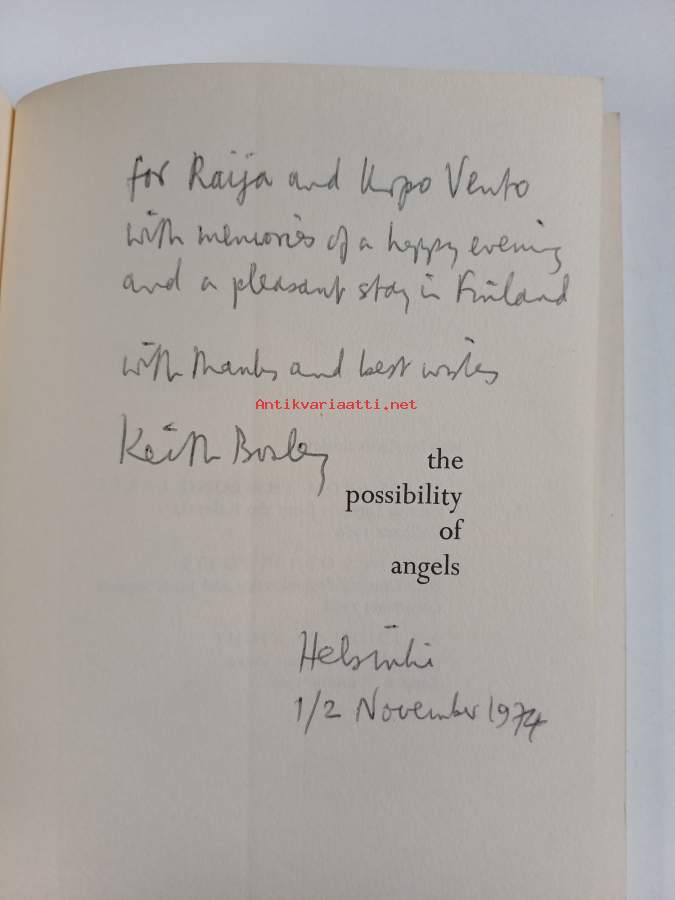 for Raija and Urpo Vento
with memories of a happy evening
and a pleasant stay in Finland
with thanks and best wishes
Antikvariaatti.net
Keith Bosley
the
possibility
of
angels
Helsinki
1/2 November 1974